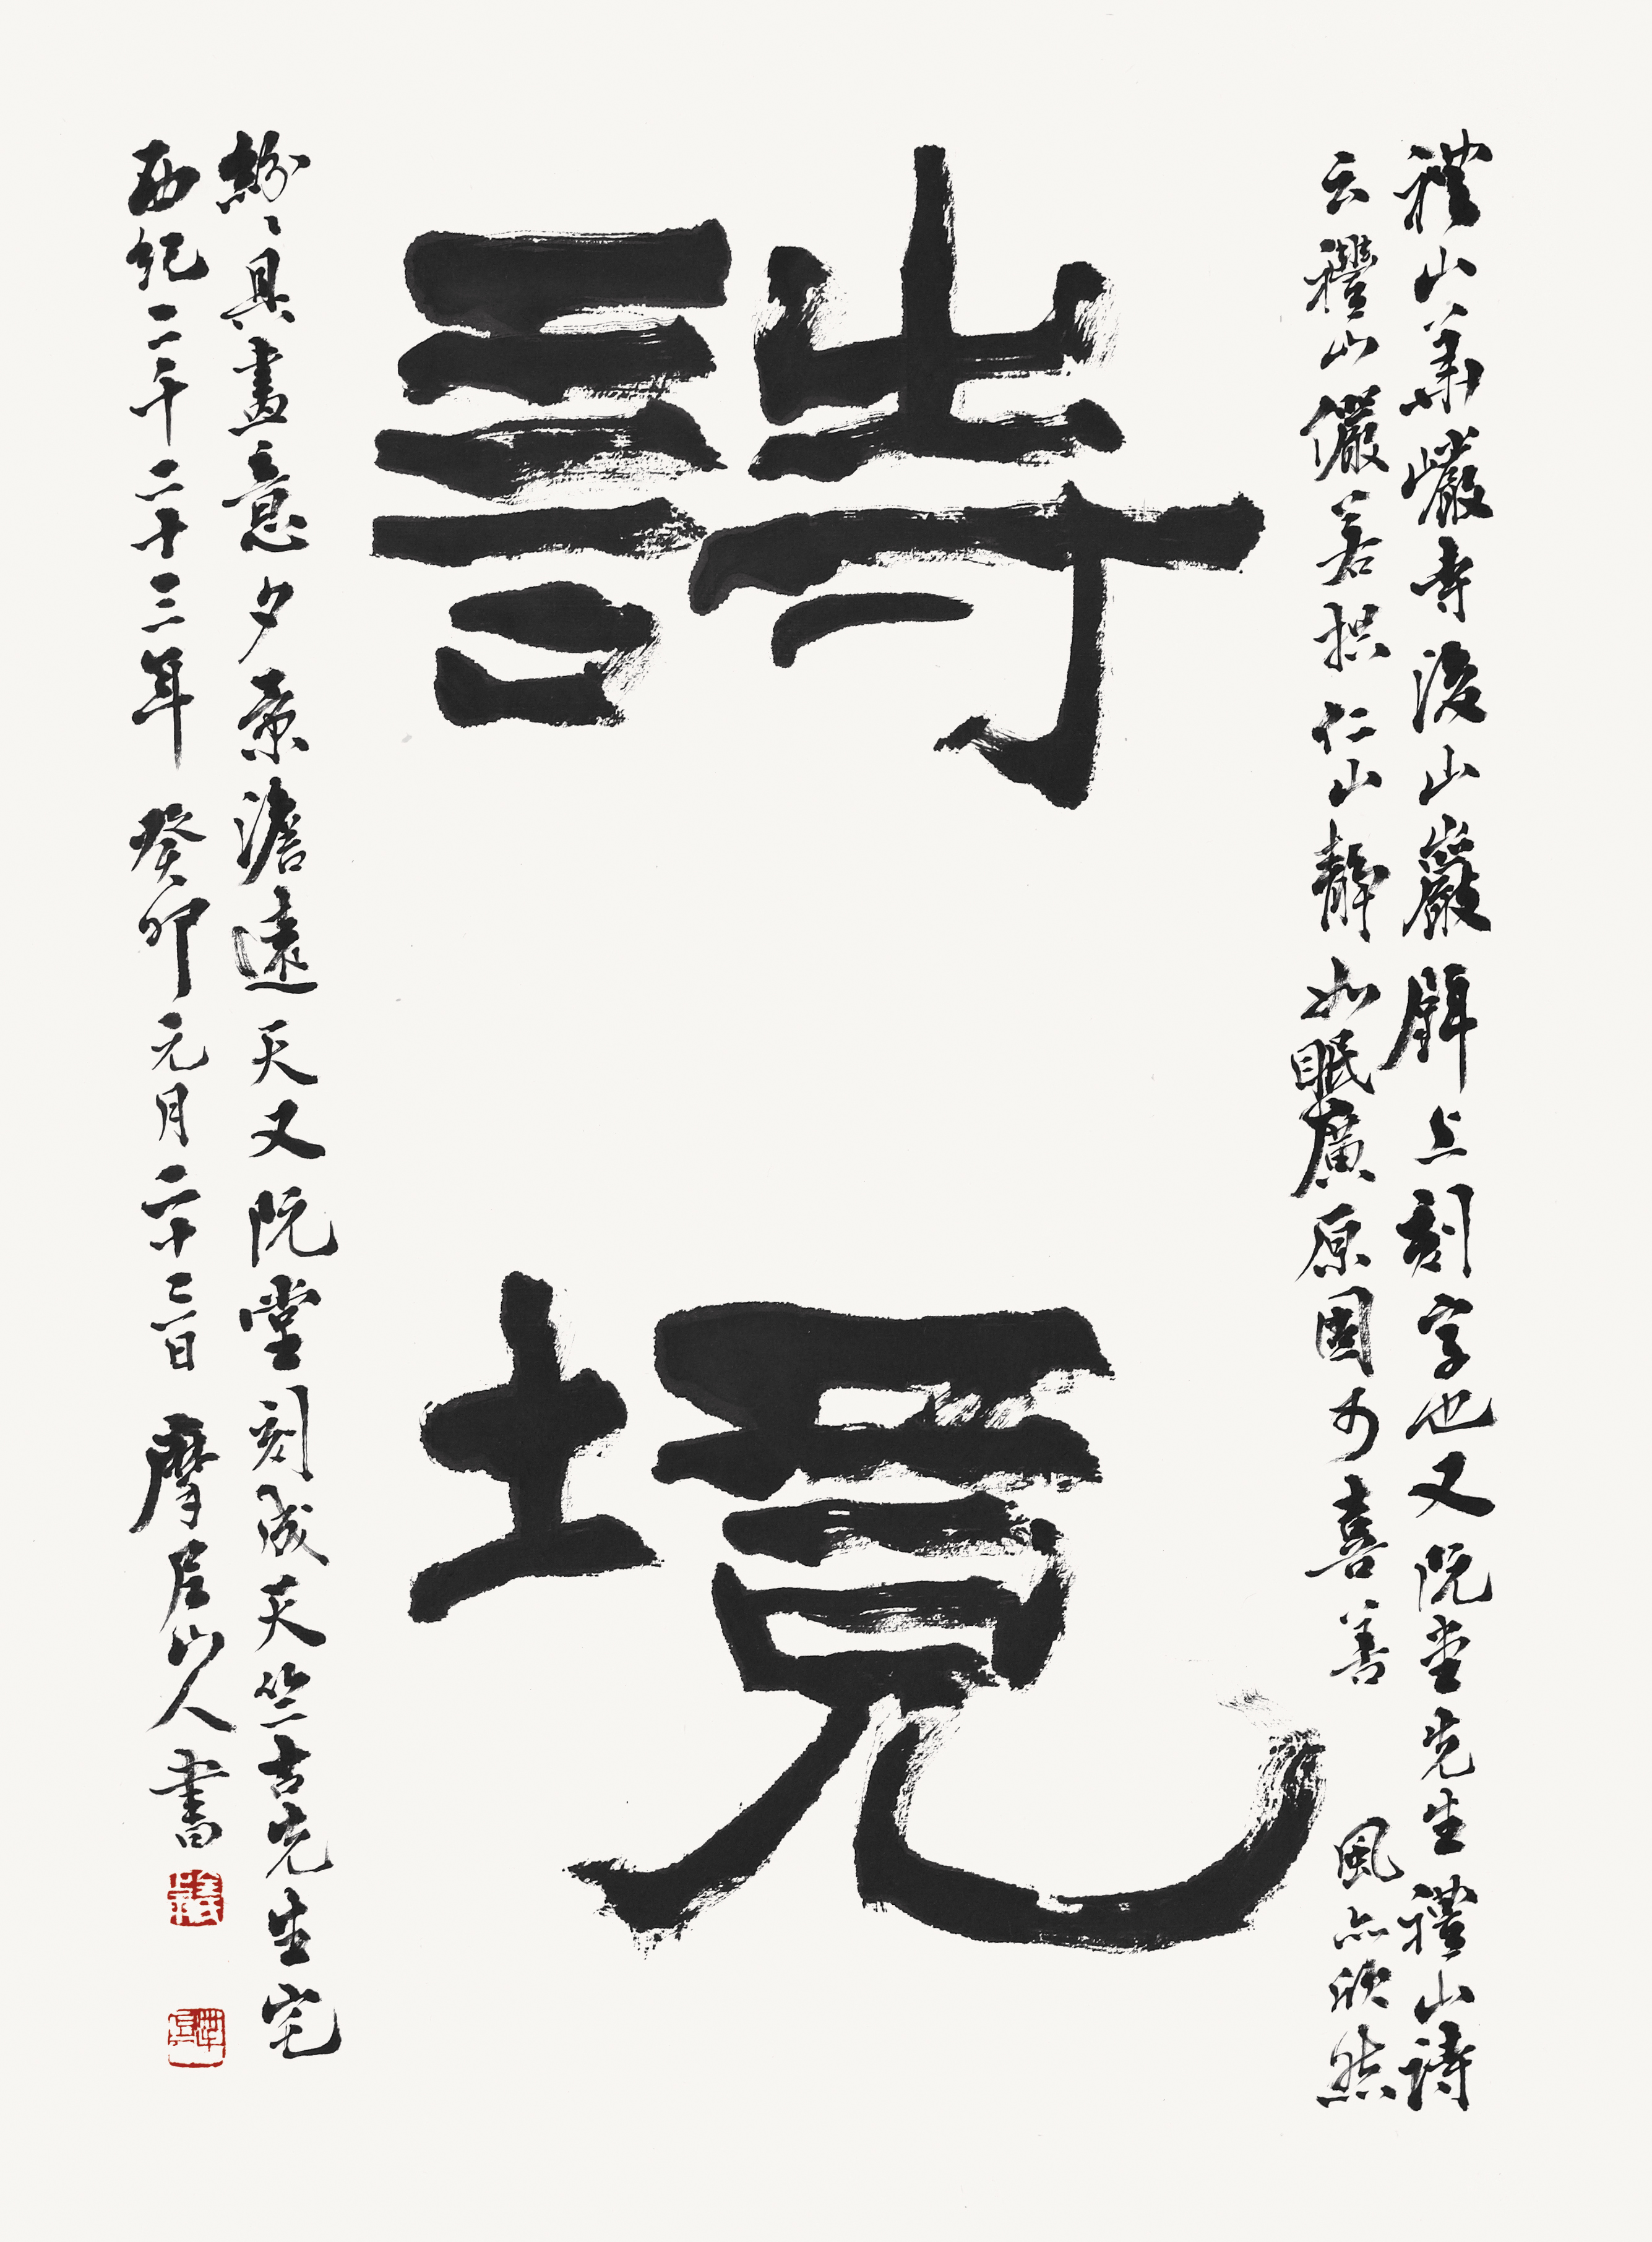 禮山華嚴寺後山巖壁上刻字也又阮堂先生禮山詩
云禮山儼若拱仁山靜如眠廣原固可喜善風亦欣然
詩境
紛紛具畫意夕景澹遠天又阮堂刻成天竺古先生宅
西紀二千二十三年 癸卯元月二十三日 摩尼山人書